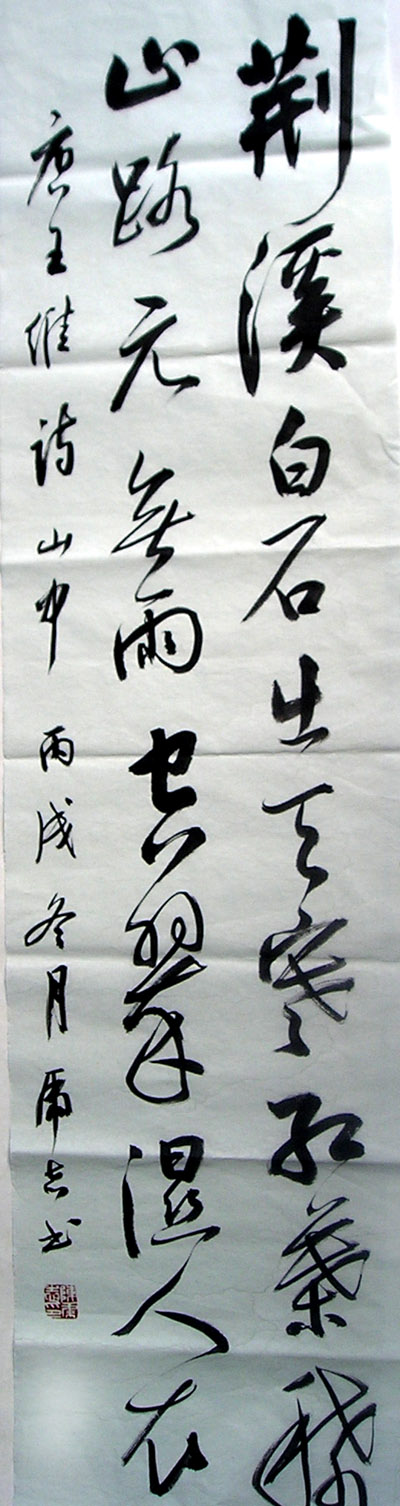 荆溪白石出天寒红葉稀
山路元無雨空翠湿人衣
唐王维诗山中 丙戌冬月虎志书